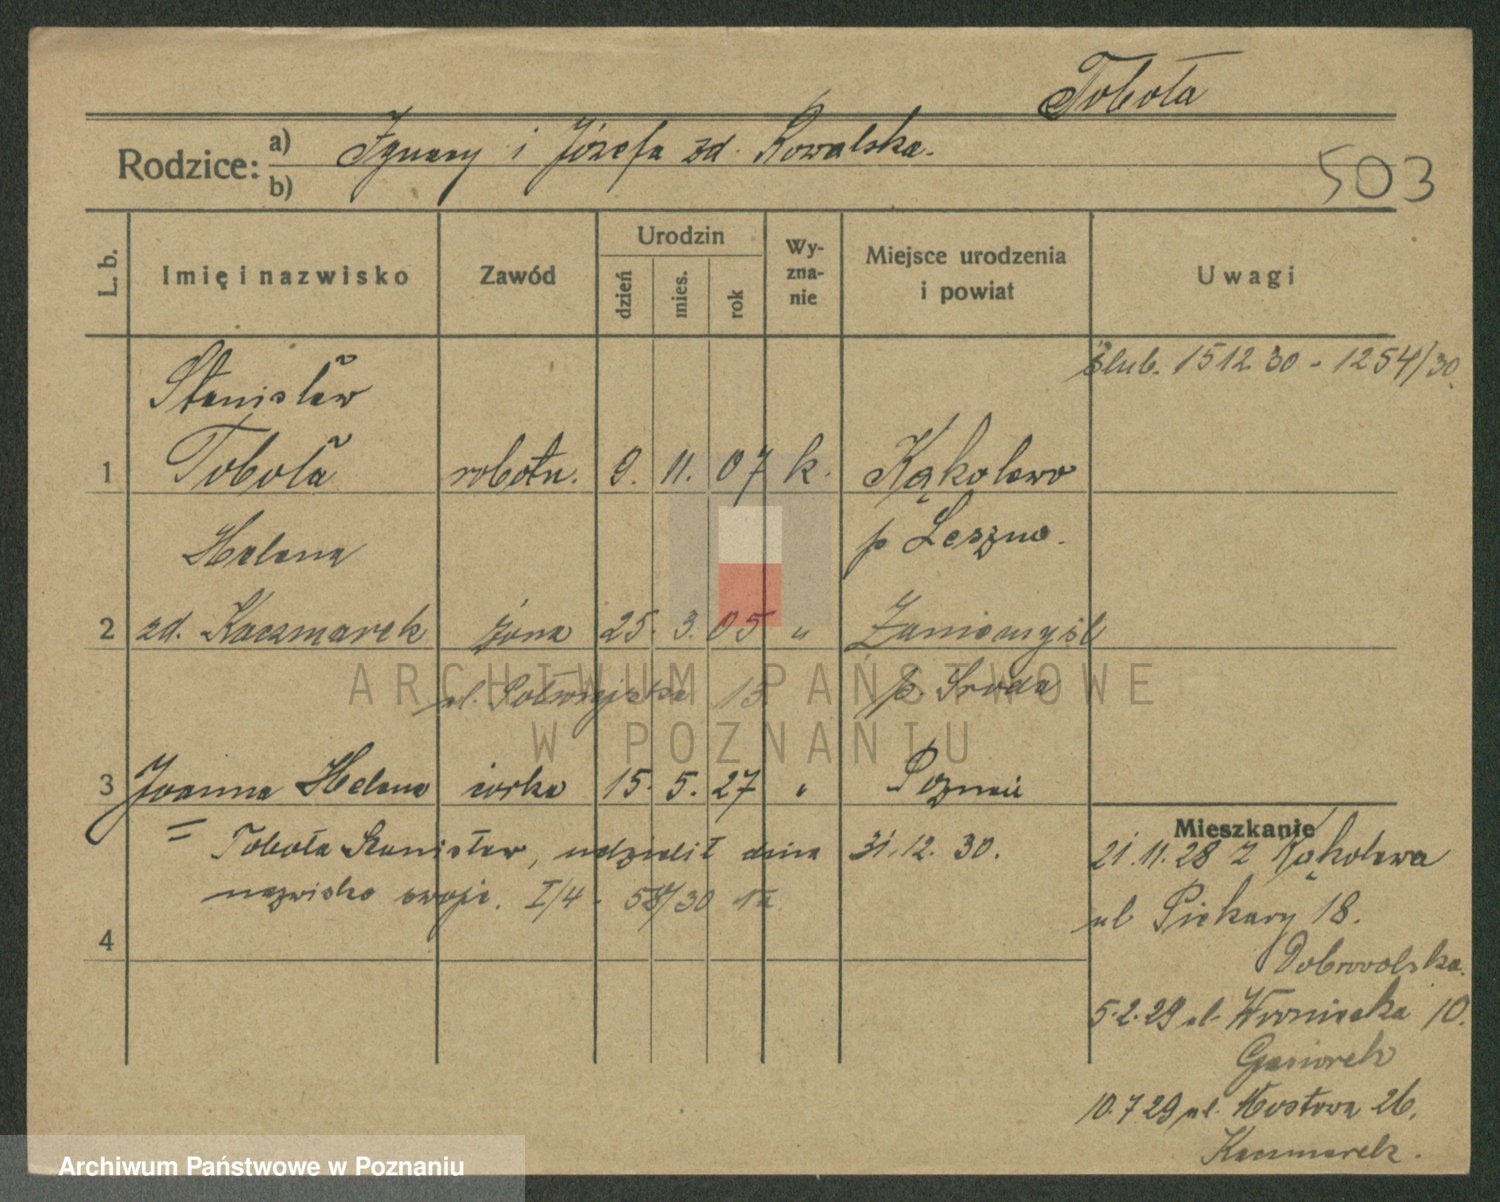 Toboła
Rodzice: a) Ignacy i Józefa zd. Kowalska.
b)
503
L. b.
Imię i nazwisko
Zawód
Urodzin
dzień
mies.
rok
Wy-
zna-
nie
Miejsce urodzenia
i powiat
Uwagi
ślub. 15 12 30 - 1254/30.
Stanisław
1 Toboła robotn. 9. 11. 07 k. Kąkolewo
p Leszno.
Helena
2 zd. Kaczmarek żona 25. 3. 05 " Zaniemyśl
p. Środa
ul. 13
3 Joanna Helena córka 15. 5. 27 " Poznań
= Toboła Stanisław, udzielił dnia 31.12.30.
nazwisko swoje. I/4 -
4
Mieszkanie
21.11.28 z Kąkolewa
ul Piekary 18.
Dobrowolska.
5.2.29 ul. Wroniecka 10.
Gąsiorek
10.7.29 ul. Mostowa 26.
Kaczmarek.
ARCHIWUM PAŃSTWOWE
W POZNANIU
Archiwum Państwowe w Poznaniu